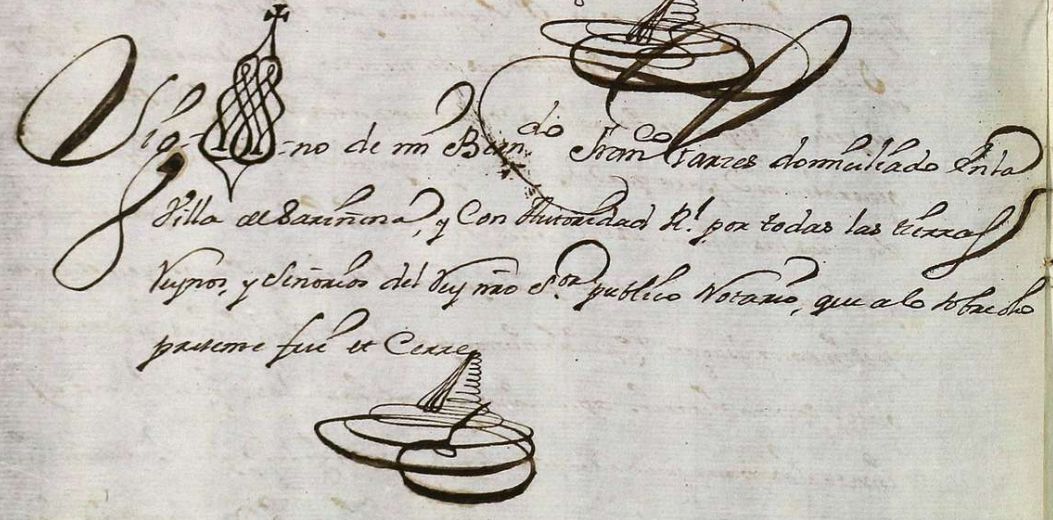 Sig-no de mi Bern.do Fran.co Tarzes domiciliado en la
Villa de Sariñena, y con Autoridad R.l por todas las tierras
Reynos, y Señorios del Rey nr̃o S.or publico Notario, que a lo sobredho
presente fui et Cerre